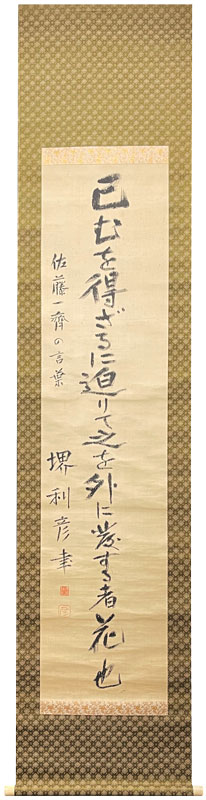 已むを得ざるに迫りて之を外に発する者花也
佐藤一齋の言葉
堺利彦書